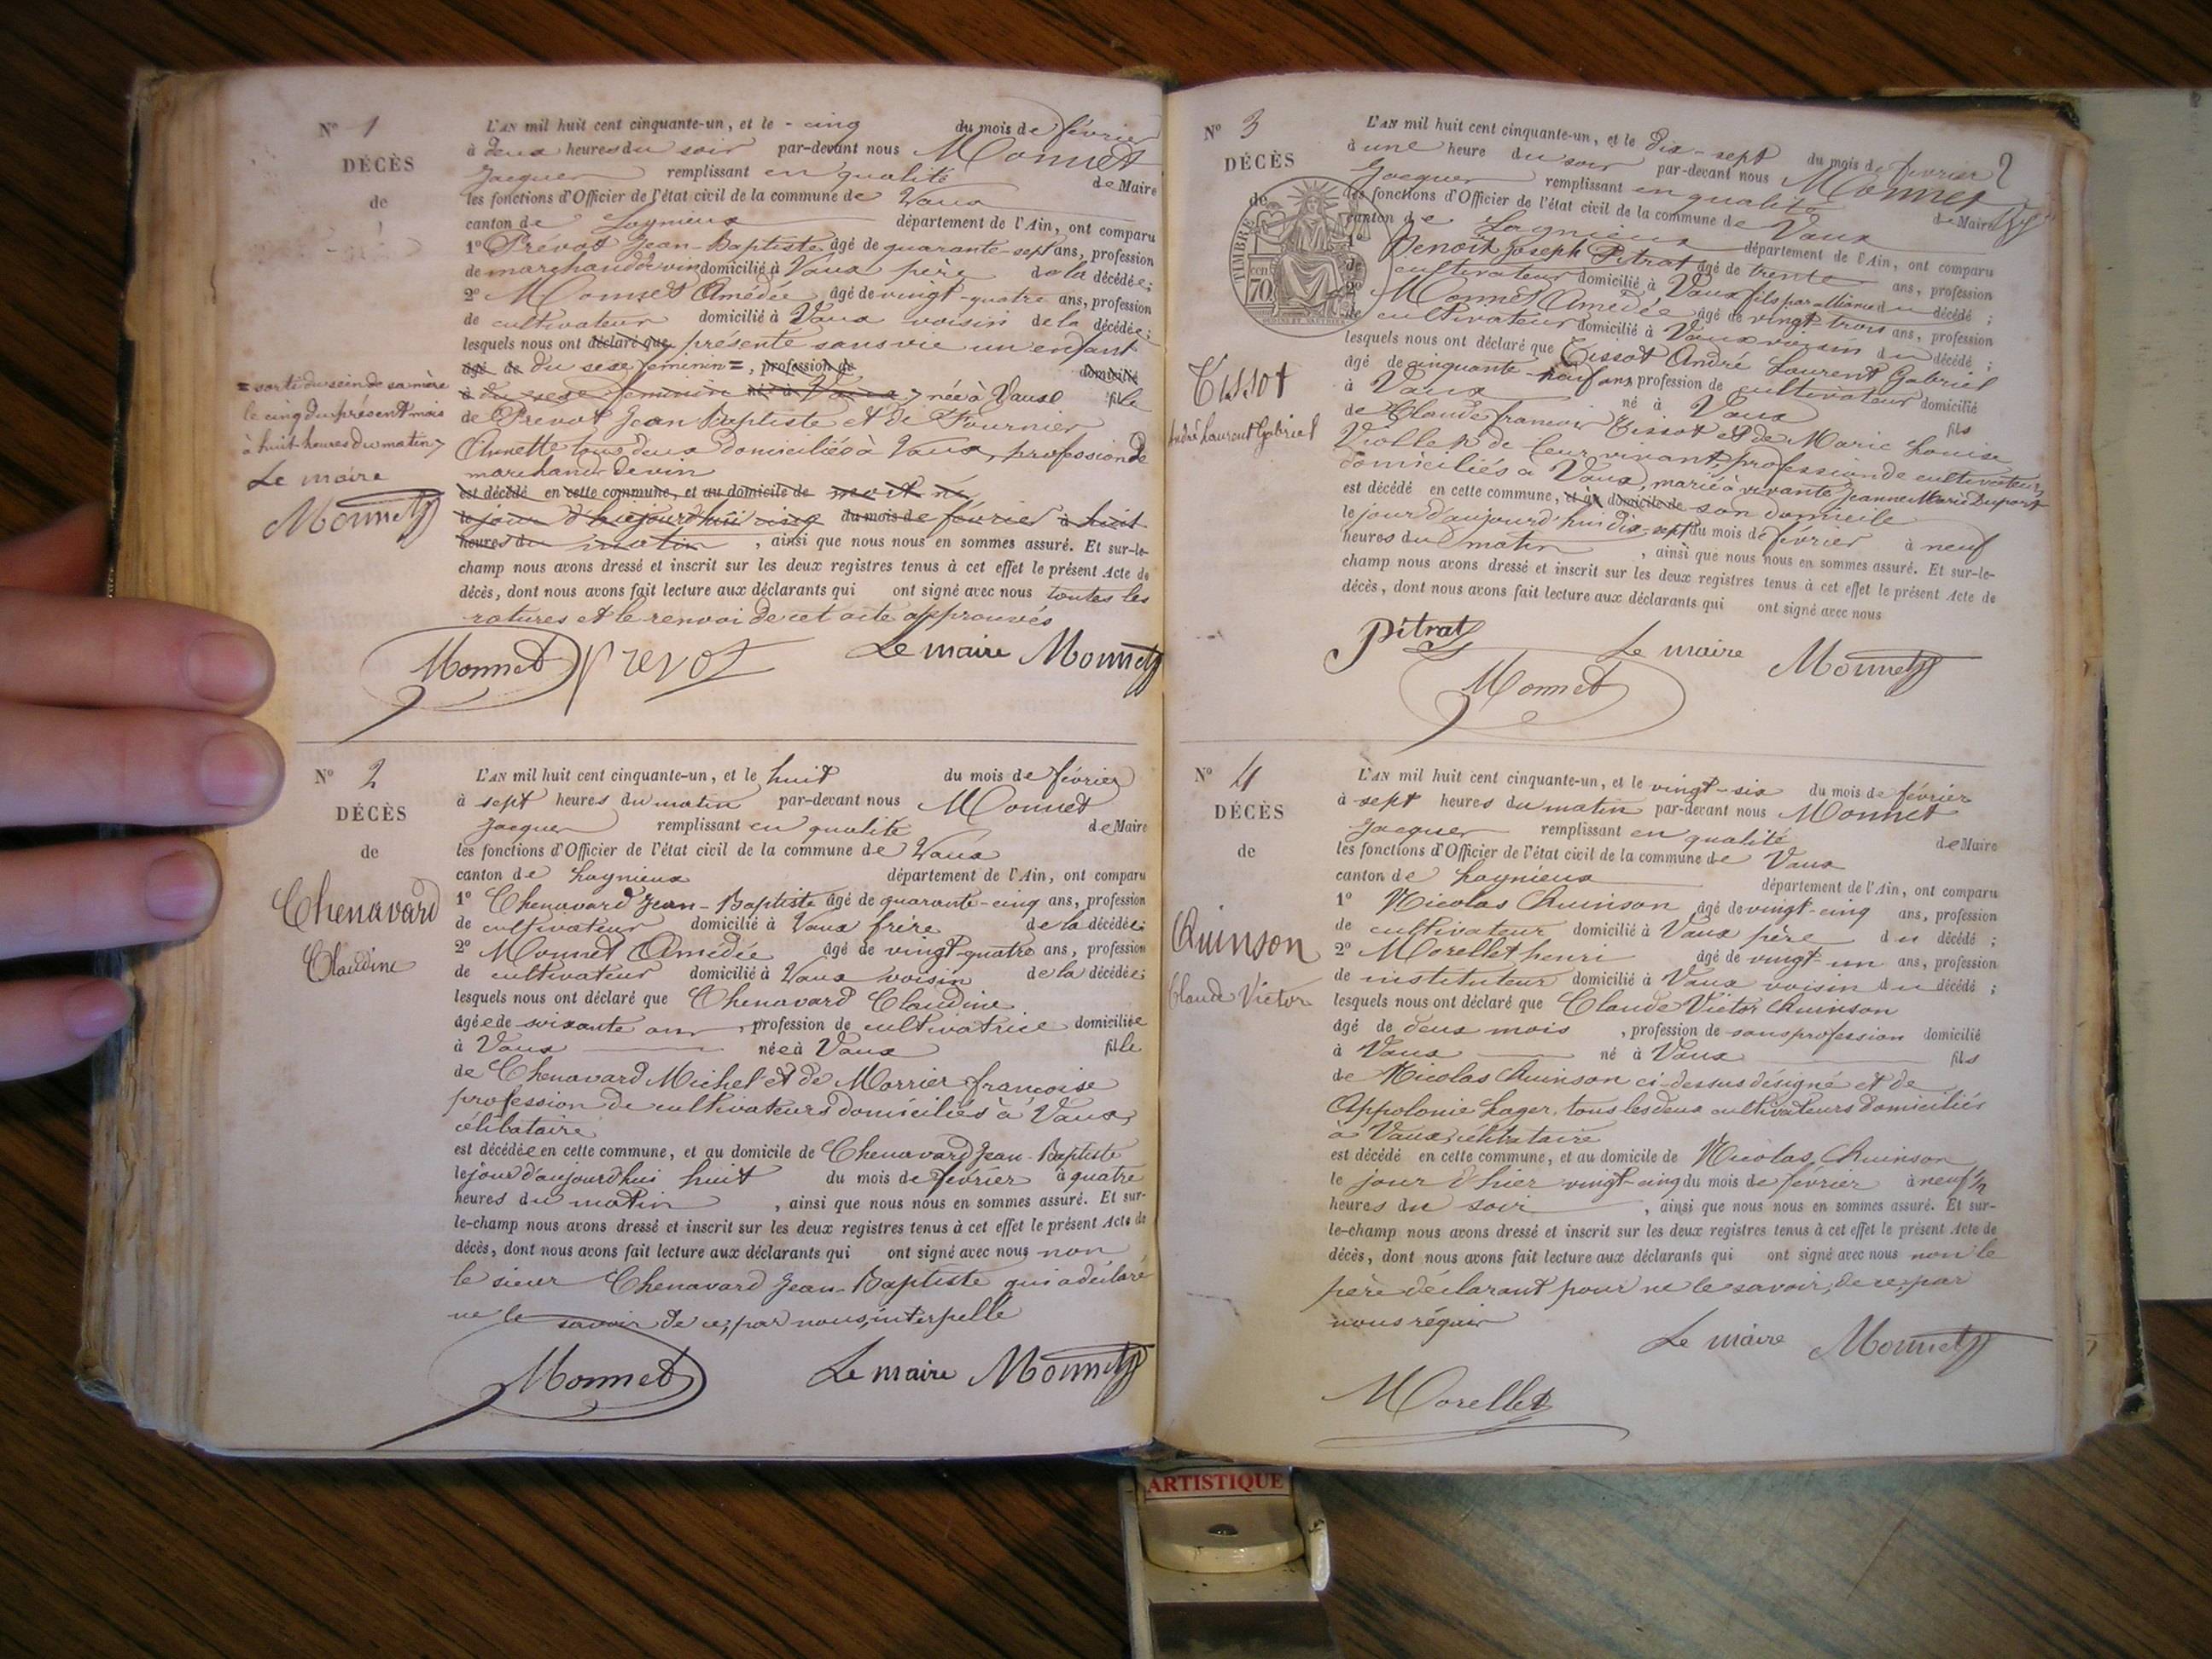 N° 1
DÉCÈS
de
L'AN mil huit cent cinquante-un, et le - cinq du mois de février
à deux heures du soir par-devant nous Monnet
Jacques remplissant en qualité de Maire
les fonctions d'Officier de l'état civil de la commune de Vaux
canton de Lagnieux département de l'Ain, ont comparu
1° Prévot Jean-Baptiste âgé de quarante-sept ans, profession
de marchand de vin domicilié à Vaux père de la décédée;
2° Monnet Amédée âgé de vingt-quatre ans, profession
de cultivateur domicilié à Vaux voisin de la décédée;
lesquels nous ont déclaré que présenté sans vie un enfant
âgé de du sexe féminin =, profession de domicilié
à du sexe féminin né à Vaux, née à Vaux fille
de Prevot Jean Baptiste et de Fournier
Annette tous deux domiciliés à Vaux, profession de
marchands de vin
est décédé en cette commune, et au domicile de mort né
le jour d'aujourd'hui cinq du mois de février à huit
heures du matin, ainsi que nous nous en sommes assuré. Et sur-le-
champ nous avons dressé et inscrit sur les deux registres tenus à cet effet le présent Acte de
décès, dont nous avons fait lecture aux déclarants qui ont signé avec nous toutes les
ratures et le renvoi de cet acte approuvés
= sorti du sein de sa mère
le cinq du présent mois
à huit heures du matin
Le maire
Monnet
Monnet Prevot Le maire Monnet
N° 2
DÉCÈS
de
Chenavard
Claudine
L'AN mil huit cent cinquante-un, et le huit du mois de février
à sept heures du matin par-devant nous Monnet
Jacques remplissant en qualité de Maire
les fonctions d'Officier de l'état civil de la commune de Vaux
canton de Lagnieux département de l'Ain, ont comparu
1° Chenavard Jean-Baptiste âgé de quarante-cinq ans, profession
de cultivateur domicilié à Vaux frère de la décédée;
2° Monnet Amédée âgé de vingt-quatre ans, profession
de cultivateur domicilié à Vaux voisin de la décédée;
lesquels nous ont déclaré que Chenavard Claudine
âgée de soixante ans, profession de cultivatrice domiciliée
à Vaux née à Vaux fille
de Chenavard Michel et de Marrier françoise
profession de cultivateurs domiciliés à Vaux,
célibataire
est décédée en cette commune, et au domicile de Chenavard Jean-Baptiste
le jour d'aujourd'hui huit du mois de février à quatre
heures du matin, ainsi que nous nous en sommes assuré. Et sur-
le-champ nous avons dressé et inscrit sur les deux registres tenus à cet effet le présent Acte de
décès, dont nous avons fait lecture aux déclarants qui ont signé avec nous non
le sieur Chenavard Jean-Baptiste qui a déclaré
ne le savoir de ce, par nous, interpellé
Monnet Le maire Monnet
N° 3
DÉCÈS
de
TIMBRE
70
Tissot
André Laurent Gabriel
2
L'AN mil huit cent cinquante-un, et le dix-sept du mois de février
à une heure du soir par-devant nous Monnet
Jacques remplissant en qualité de Maire
les fonctions d'Officier de l'état civil de la commune de Vaux
canton de Lagnieux département de l'Ain, ont comparu
1° Benoit Joseph Pitrat âgé de trente ans, profession
de cultivateur domicilié à Vaux fils par alliance du décédé;
2° Monnet Amédée âgé de vingt-trois ans, profession
de cultivateur domicilié à Vaux voisin du décédé;
lesquels nous ont déclaré que Tissot André Laurent Gabriel
âgé de cinquante-neuf ans, profession de cultivateur domicilié
à Vaux né à Vaux fils
de Claude françois Tissot et de Marie Louise
Viollet de leur vivant, profession de cultivateurs
domiciliés à Vaux, marié à vivante Jeanne Marie Duport
est décédé en cette commune, et au domicile de son domicile
le jour d'aujourd'hui dix-sept du mois de février à neuf
heures du matin, ainsi que nous nous en sommes assuré. Et sur-le-
champ nous avons dressé et inscrit sur les deux registres tenus à cet effet le présent Acte de
décès, dont nous avons fait lecture aux déclarants qui ont signé avec nous
Pitrat Le maire Monnet
Monnet
N° 4
DÉCÈS
de
Quinson
Claude Victor
L'AN mil huit cent cinquante-un, et le vingt-six du mois de février
à sept heures du matin par-devant nous Monnet
Jacques remplissant en qualité de Maire
les fonctions d'Officier de l'état civil de la commune de Vaux
canton de Lagnieux département de l'Ain, ont comparu
1° Nicolas Quinson âgé de vingt-cinq ans, profession
de cultivateur domicilié à Vaux père du décédé;
2° Morellet henri âgé de vingt-un ans, profession
de instituteur domicilié à Vaux voisin du décédé;
lesquels nous ont déclaré que Claude Victor Quinson
âgé de deux mois, profession de sans profession domicilié
à Vaux né à Vaux fils
de Nicolas Quinson ci-dessus désigné et de
Appolonie Lager, tous les deux cultivateurs domiciliés
à Vaux, célibataire
est décédé en cette commune, et au domicile de Nicolas Quinson
le jour d'hier vingt-cinq du mois de février à neuf ½
heures du soir, ainsi que nous nous en sommes assuré. Et sur-
le-champ nous avons dressé et inscrit sur les deux registres tenus à cet effet le présent Acte de
décès, dont nous avons fait lecture aux déclarants qui ont signé avec nous non le
père déclarant pour ne le savoir, de ce, par
nous réquis
Le maire Monnet
Morellet
ARTISTIQUE